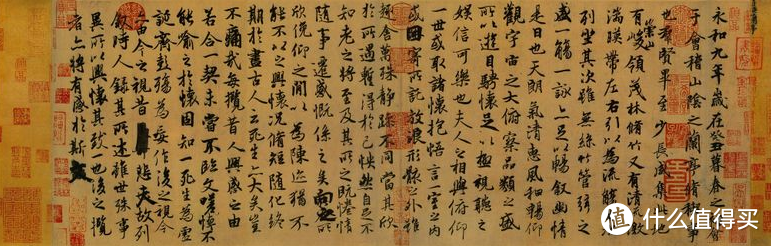 永和九年歲在癸丑暮春之初會
于會稽山陰之蘭亭脩稧事
也羣賢畢至少長咸集此地
有崇山峻領茂林脩竹又有清流激
湍暎帶左右引以為流觴曲水
列坐其次雖無絲竹管弦之
盛一觴一詠亦足以暢敘幽情
是日也天朗氣清惠風和暢仰
觀宇宙之大俯察品類之盛
所以遊目騁懷足以極視聽之
娛信可樂也夫人之相與俯仰
一世或取諸懷抱悟言一室之內
或因寄所託放浪形骸之外雖
趣舍萬殊靜躁不同當其欣
於所遇暫得於己怏然自足不
知老之將至及其所之既惓情
隨事遷感慨係之矣向之所
欣俛仰之閒以為陳迹猶不
能不以之興懷況脩短隨化終
期於盡古人云死生亦大矣豈
不痛哉每攬昔人興感之由
若合一契未嘗不臨文嗟悼不
能喻之於懷固知一死生為虛
誕齊彭殤為妄作後之視今
亦由今之視昔悲夫故列
敘時人錄其所述雖世殊事
異所以興懷其致一也後之攬
者亦將有感於斯文
值 什么值得买